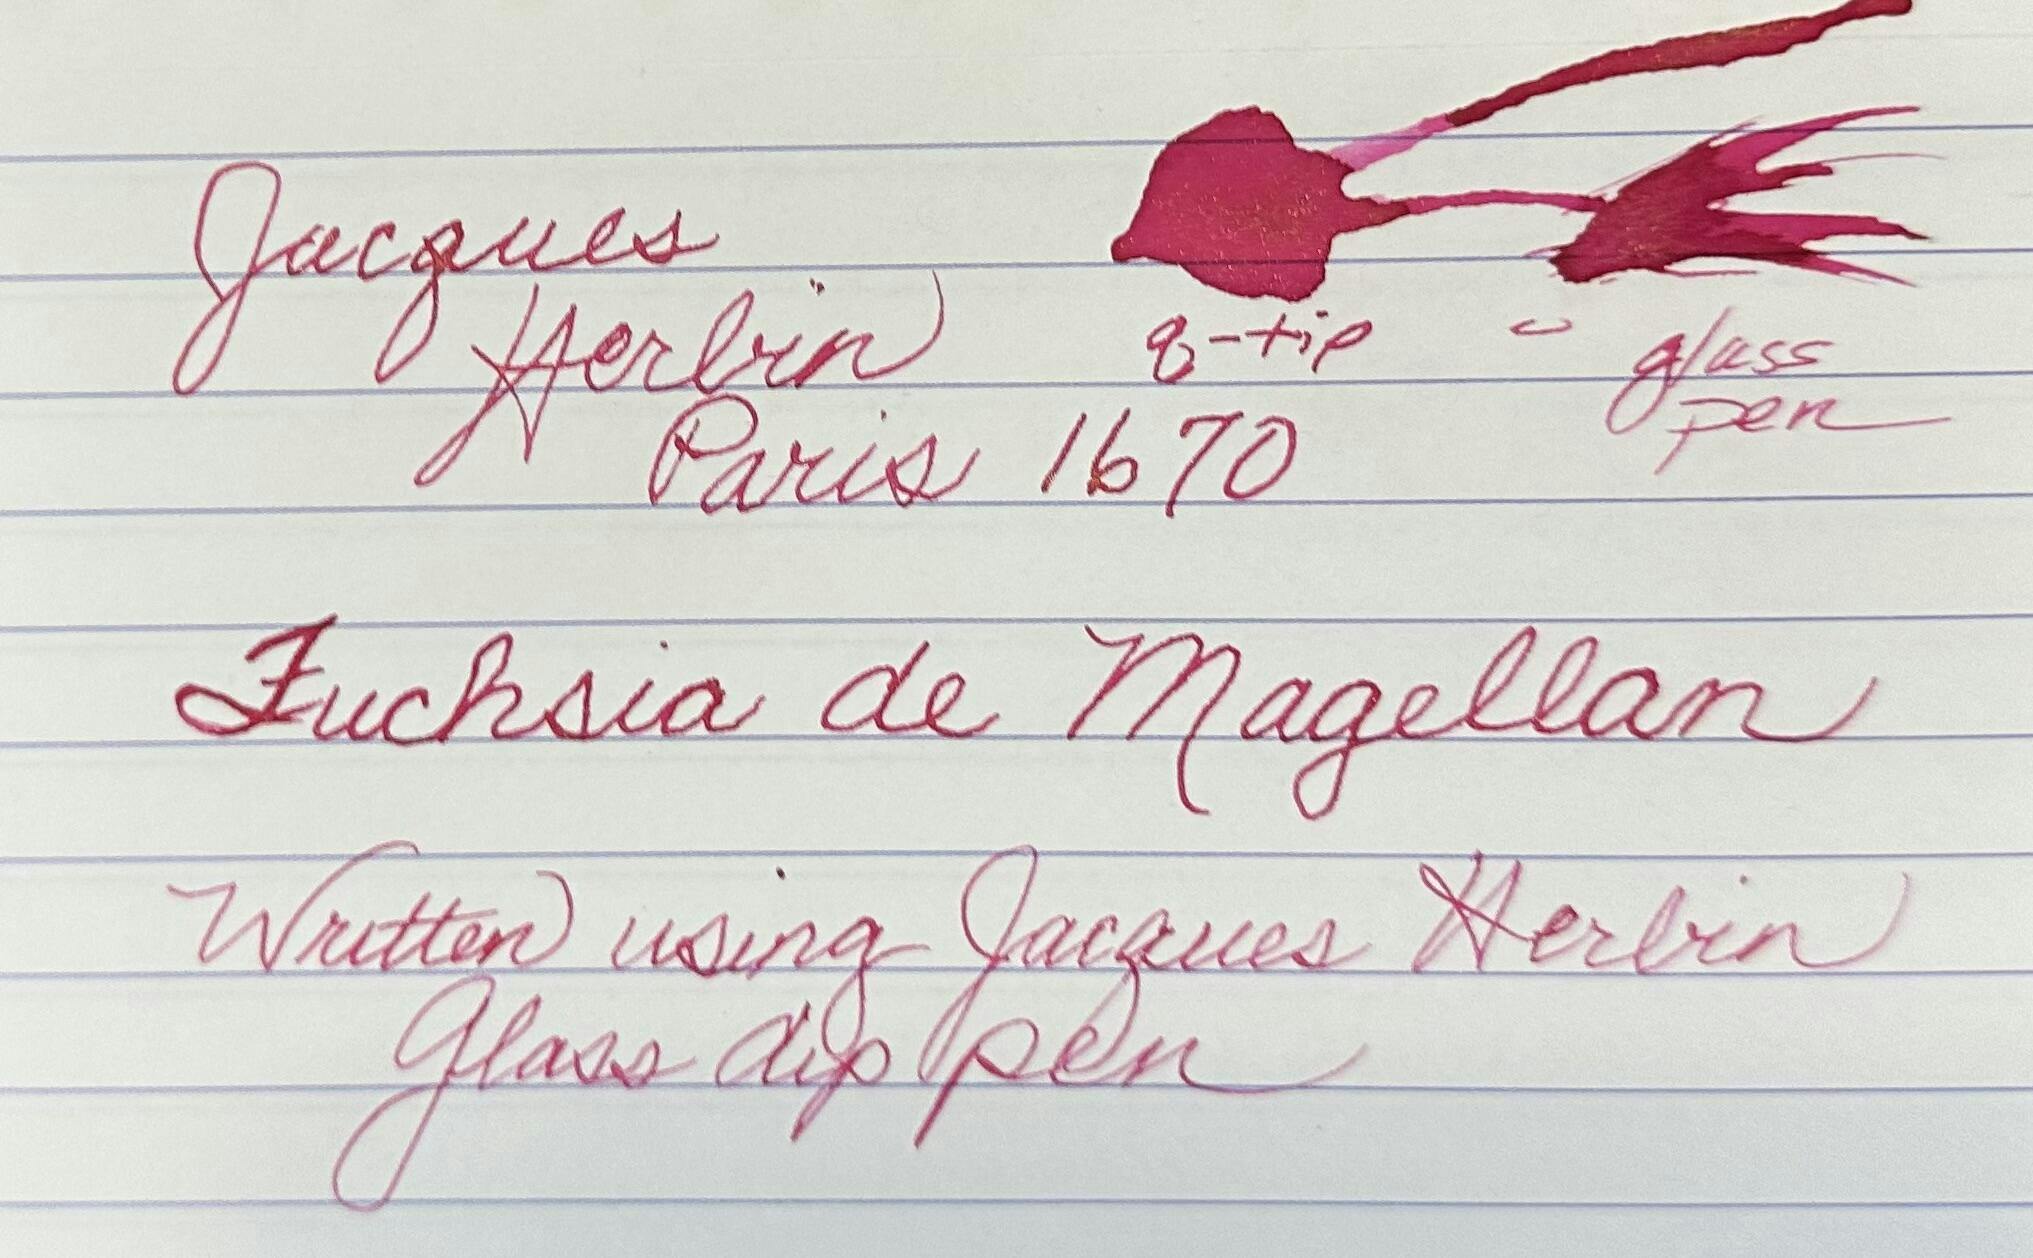 Jacques
Herbin
Paris 1670
q-tip
glass
pen
Fuchsia de Magellan
Written using Jacques Herbin
Glass dip pen